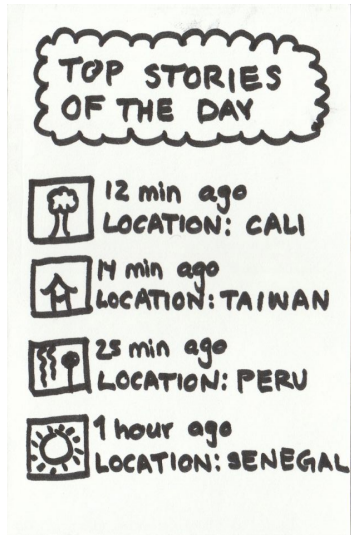 TOP STORIES
OF THE DAY
12 min ago
LOCATION: CALI
14 min ago
LOCATION: TAIWAN
25 min ago
LOCATION: PERU
1 hour ago
LOCATION: SENEGAL